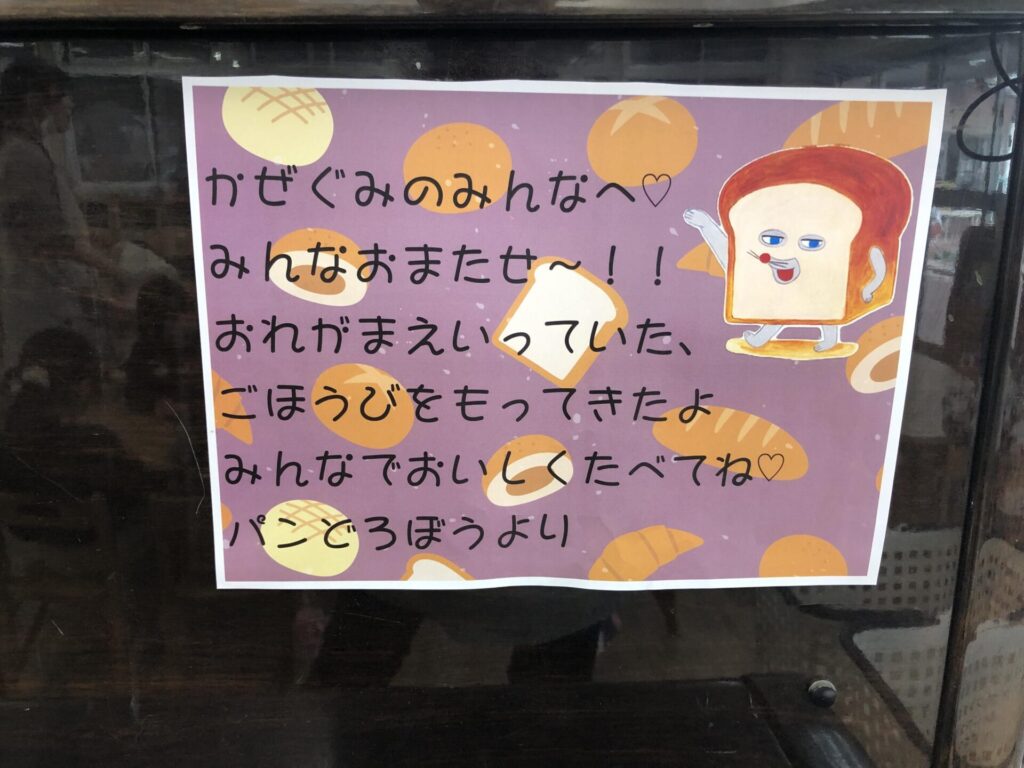 かぜぐみのみんなへ♡
みんなおまたせ〜！！
おれがまえいっていた、
ごほうびをもってきたよ
みんなでおいしくたべてね♡
パンどろぼうより